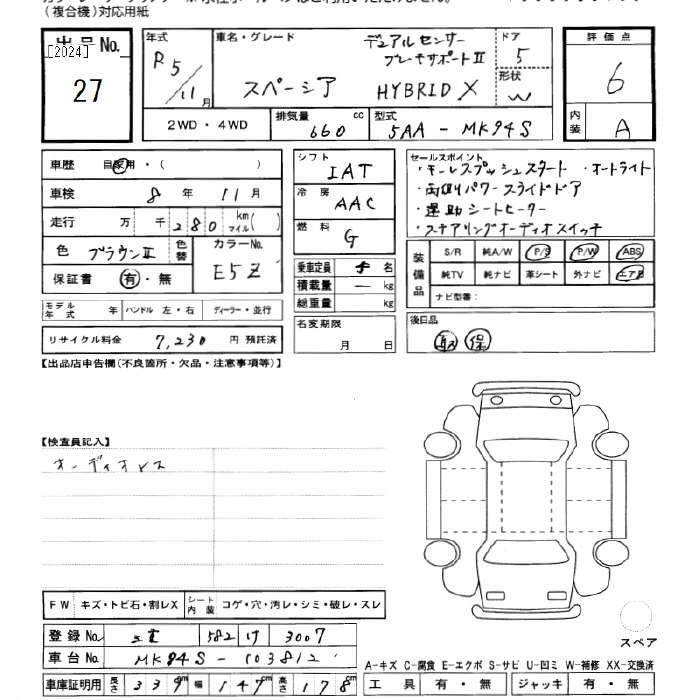 (複合機)対応用紙
出品No. [2024] 27
年式 R5/11月
車名・グレード スペーシア デュアルセンサーブレーキサポートⅡ HYBRID X
ドア 5
形状 W
評価点 6
内装 A
2WD・4WD
排気量 660 cc
型式 5AA-MK94S
車歴 自家用・( )
車検 8年 11月
走行 万 千 280 km マイル( )
色 ブラウンⅡ 色替
カラーNo. E5Z
保証書 有・無
モデル年式 年 ハンドル 左・右 ディーラー・並行
リサイクル料金 7,230 円 預託済
シフト IAT
冷房 AAC
燃料 G
乗車定員 名
積載量 — kg
総重量 kg
名変期限 月 日
セールスポイント
・キーレスプッシュスタート ・オートライト
・両側パワースライドドア
・運助シートヒーター
・ステアリングオーディオスイッチ
装備品 S/R 純A/W P/S P/W ABS
純TV 純ナビ 革シート 外ナビ エアB
ナビ型番:
後日品
取 保
【出品店申告欄(不良箇所・欠品・注意事項等)】
【検査員記入】
オーディオレス
FW キズ・トビ石・割レX シート内装 コゲ・穴・汚レ・シミ・破レ・スレ
登録No. 582 け 3007
車台No. MK94S-103812
車庫証明用 長さ 339cm 幅 147cm 高さ 178cm
スペア
A-キズ C-腐食 E-エクボ S-サビ U-凹ミ W-補修 XX-交換済
工具 有・無 ジャッキ 有・無